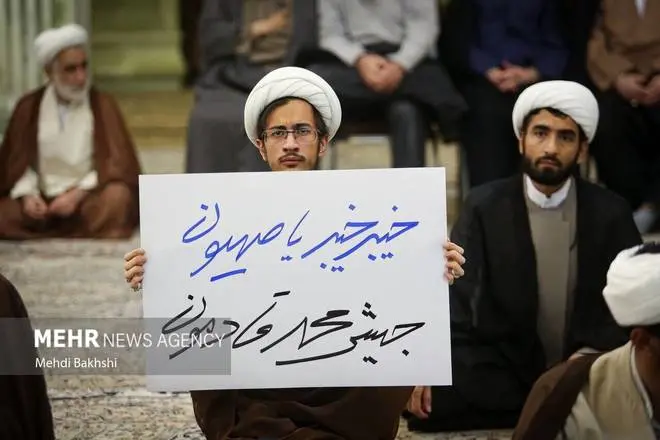 خیبر خیبر یا صهیون
جیش محمد قادمون
MEHR NEWS AGENCY
Mehdi Bakhshi